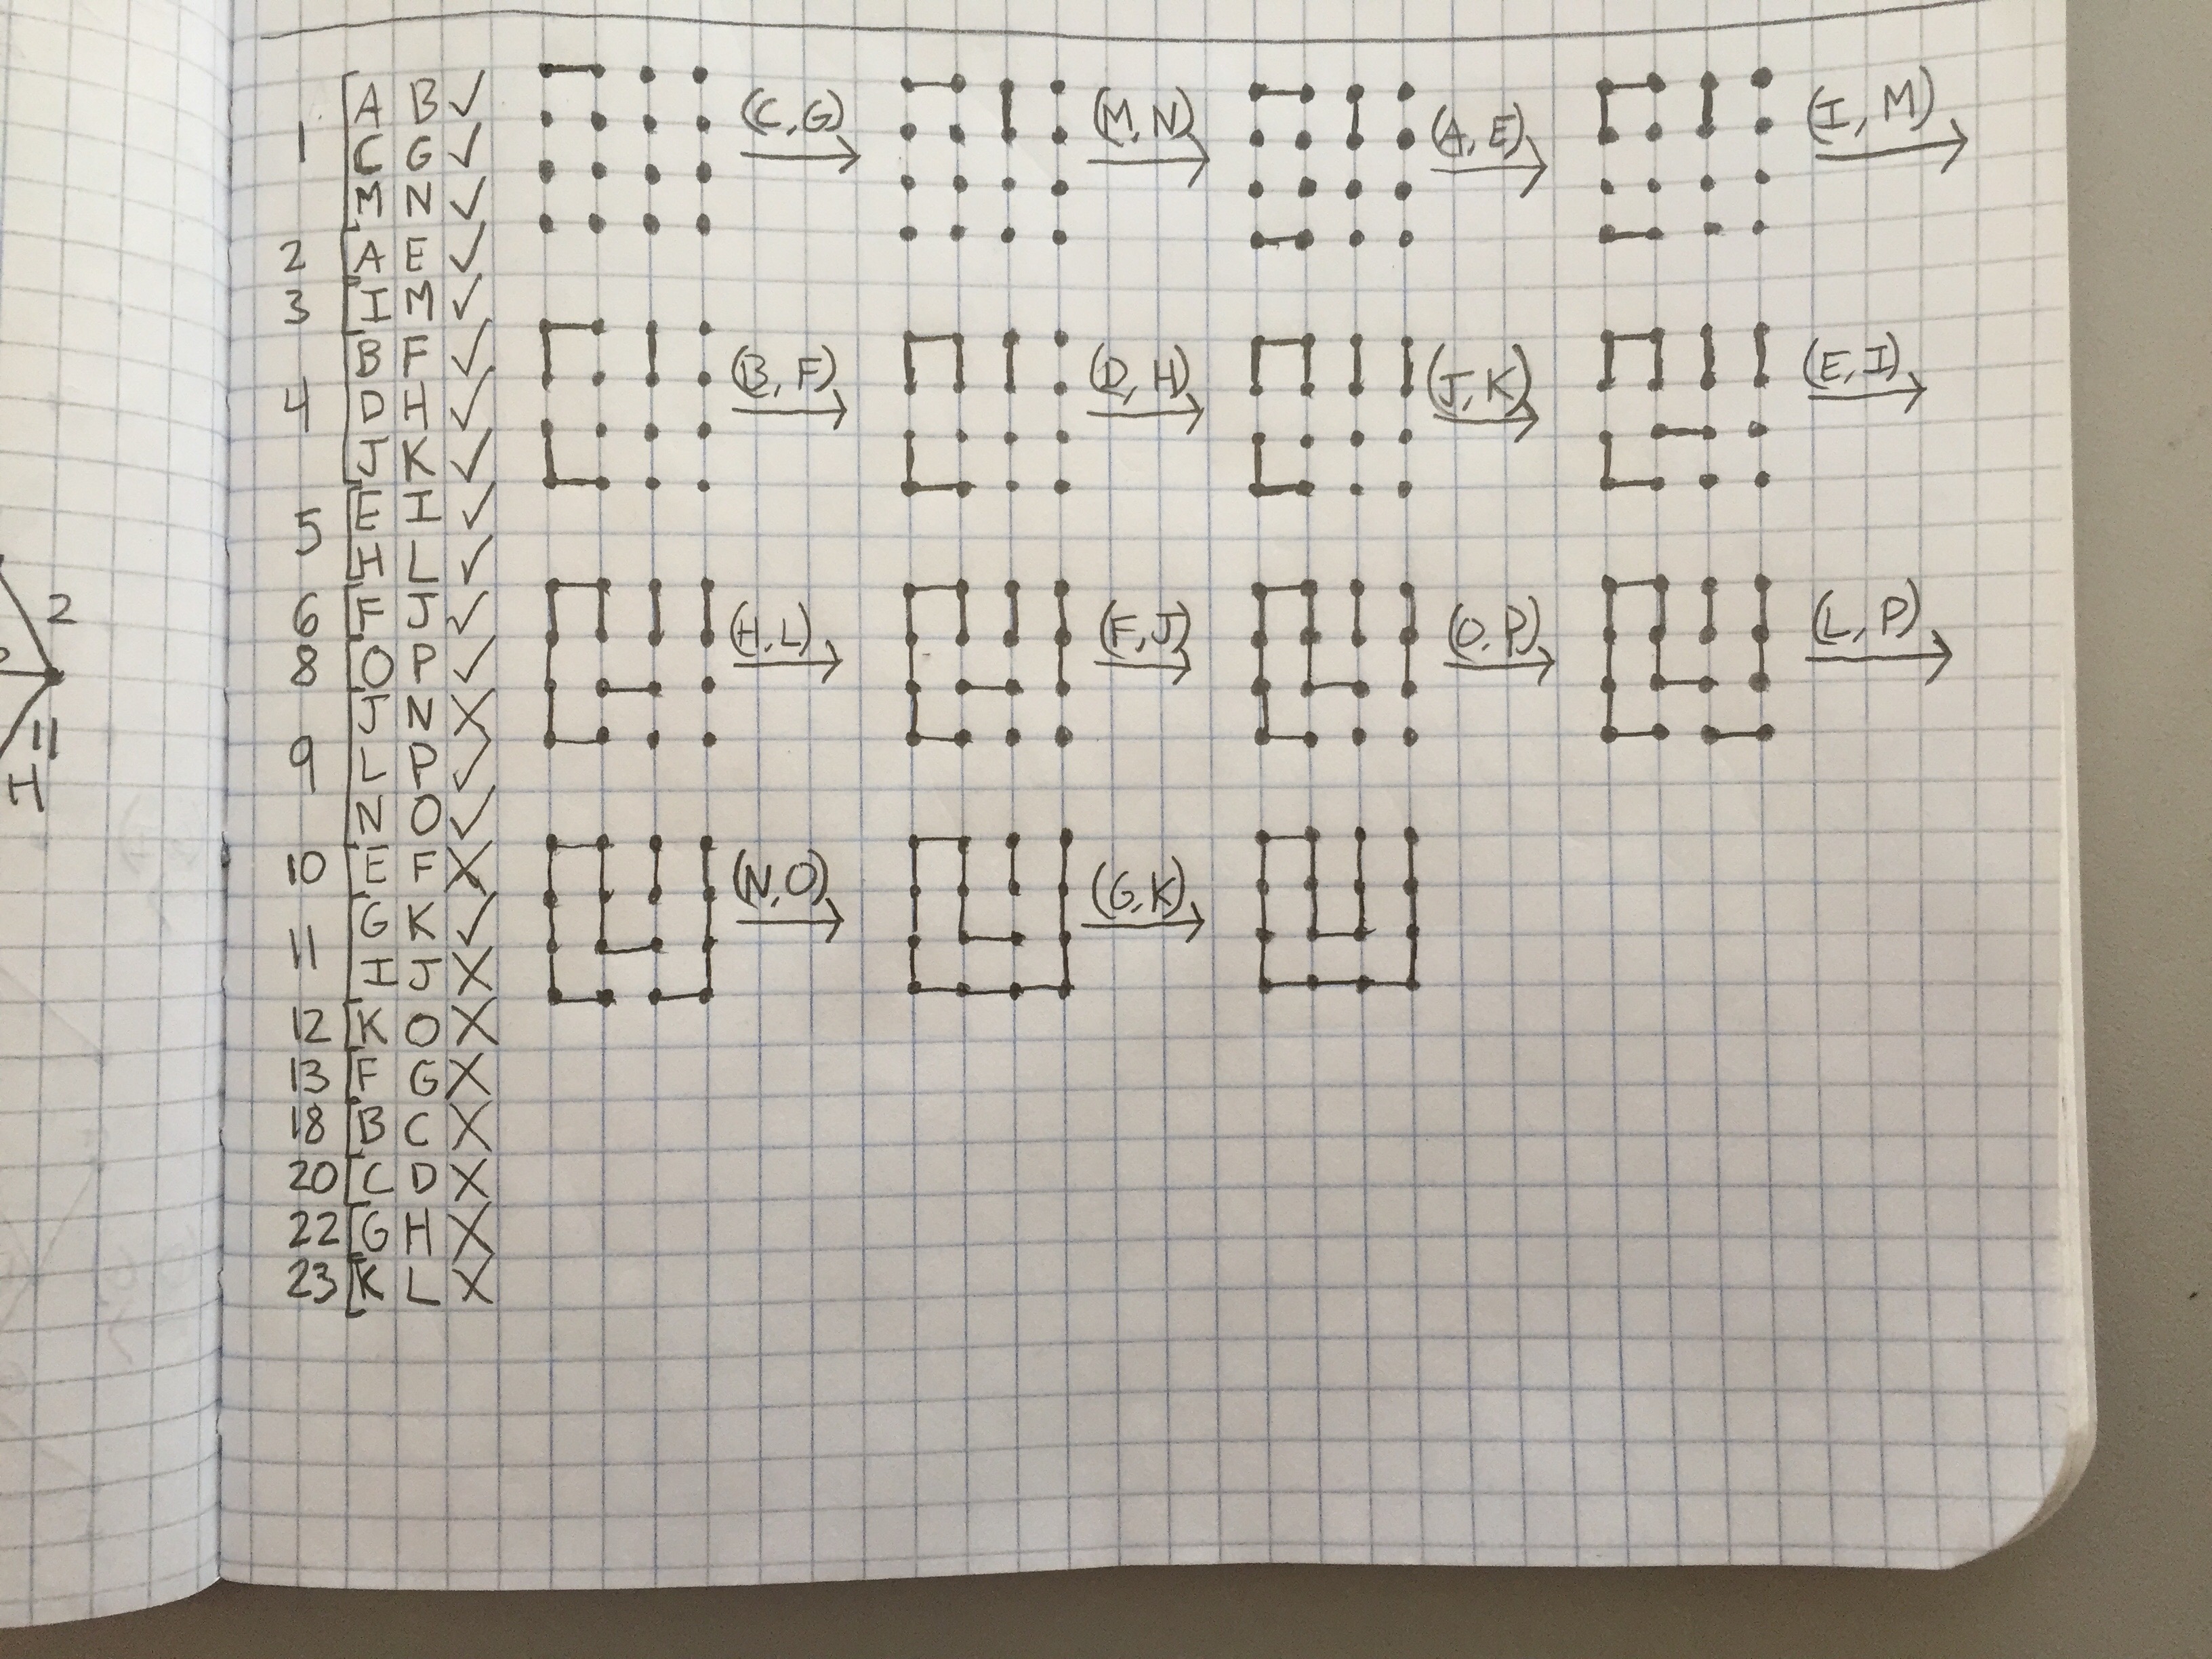 1 [A B ✓
C G ✓
M N ✓
2 [A E ✓
3 [I M ✓
4 [B F ✓
D H ✓
J K ✓
5 [E I ✓
H L ✓
6 [F J ✓
8 [O P ✓
J N X
9 [L P ✓
N O ✓
10 [E F X
11 [G K ✓
I J X
12 [K O X
13 [F G X
18 [B C X
20 [C D X
22 [G H X
23 [K L X
(C,G) (M,N) (A,E) (I,M)
(B,F) (D,H) (J,K) (E,I)
(H,L) (F,J) (O,P) (L,P)
(N,O) (G,K)
2
11
H